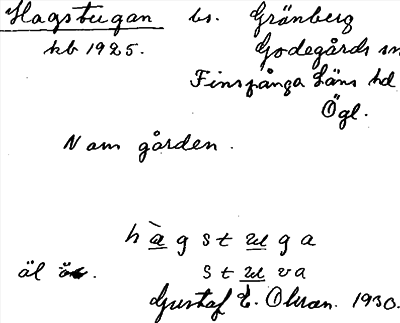 Hagstugan bs. Grönberg
kb 1925. Godegårds sn
Finspånga läns hd
Ögl.
N om gården.
hàgstuga
äl stuva
Gustaf E. Olsson. 1930.